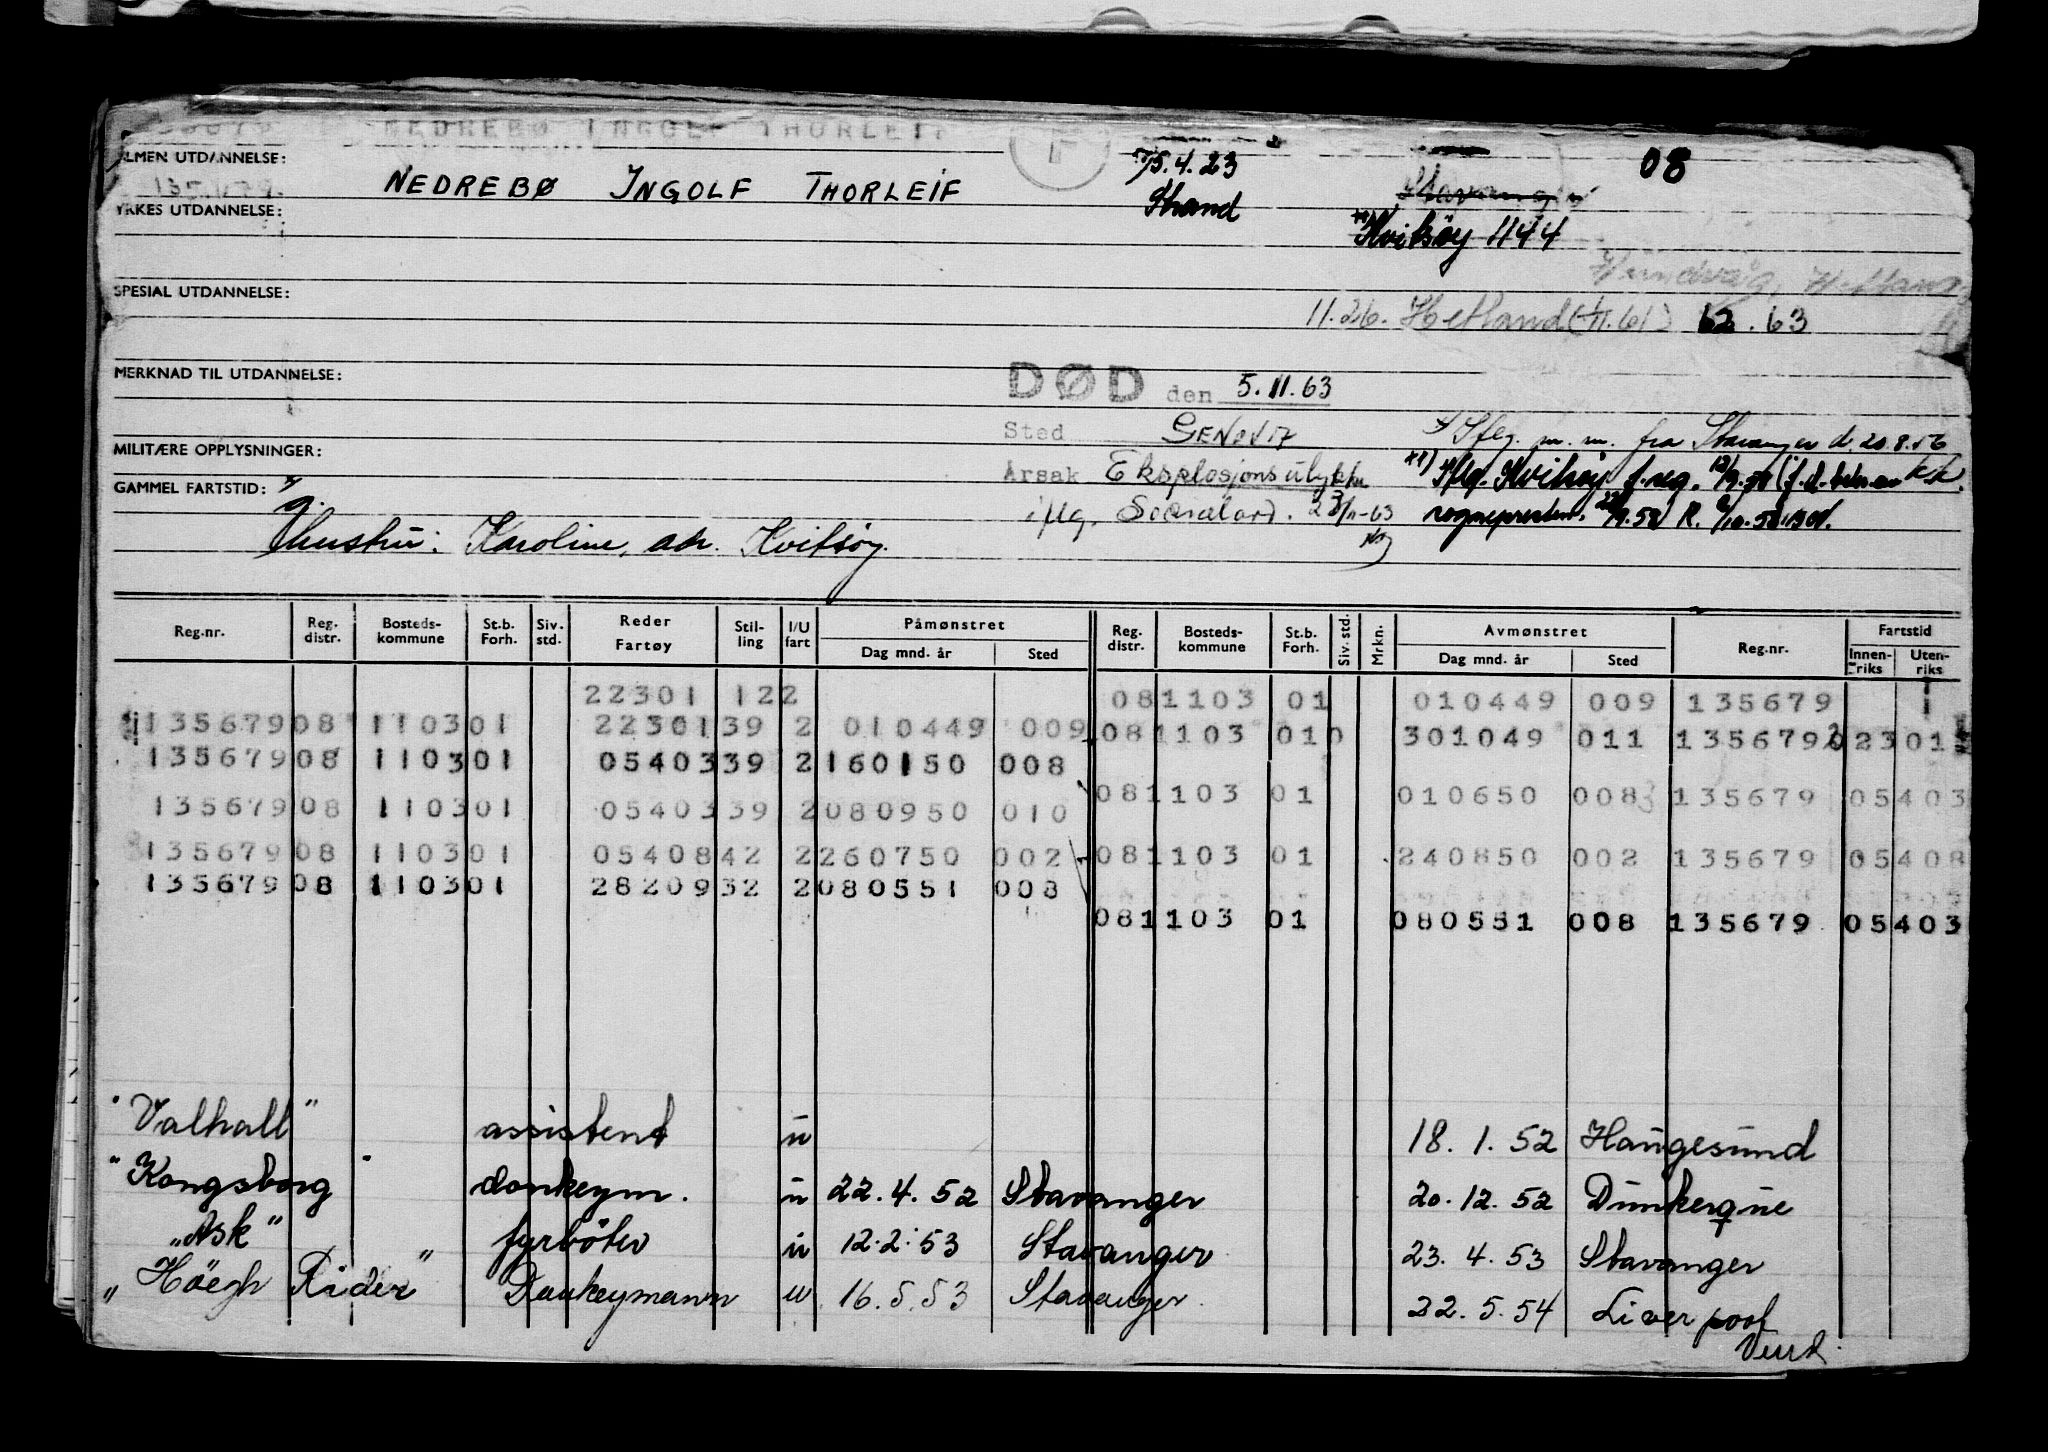 NEDREBØ INGOLF THORLEIF
ALMEN UTDANNELSE:
NEDREBØ INGOLF THORLEIF
15.4.23
08
YRKES UTDANNELSE:
Strand
Stavanger
Kvitsøy 1144
Hundvåg, Hetland
SPESIAL UTDANNELSE:
11.26. Hetland 62.63
MERKNAD TIL UTDANNELSE:
DØD den 5.11.63
Sted GENOVA
Iflg. m.m. fra Stavanger d. 20.8.56
MILITÆRE OPPLYSNINGER:
Årsak Eksplosjonsulykke
Iflg. Kvitsøy f.reg.
GAMMEL FARTSTID:
iflg. -63
sognepresten
hustru: Karoline, adr. Kvitsøy.
Reg.nr. Reg. distr. Bosteds-kommune St.b. Forh. Siv. std. Reder Fartøy Stil-ling I/U fart Påmønstret Dag mnd. år Sted Reg. distr. Bosteds-kommune St.b. Forh. Siv. std. Mrkn. Avmønstret Dag mnd. år Sted Reg.nr. Fartstid Innen-riks Uten-riks
22301 122 081103 01 010449 009 135679
135679 08 1103 01 22301 39 2 010449 009 081103 010 301049 011 135679 02301
135679 08 1103 01 05403 39 2 160150 008
081103 01 010650 008 135679 05403
135679 08 1103 01 05403 39 2 080950 010
135679 08 1103 01 05408 42 2 260750 002 081103 01 240850 002 135679 05408
135679 08 1103 01 28209 32 2 080551 008
081103 01 080551 008 135679 05403
"Valhall" assistent u 18.1.52 Haugesund
"Kongsborg" donkeym. u 22.4.52 Stavanger 20.12.52 Dunkerque
"Ask" fyrböter u 12.2.53 Stavanger 23.4.53 Stavanger
"Höegh Rider" Donkeymann u 16.5.53 Stavanger 22.5.54 Liverpool
Vend.